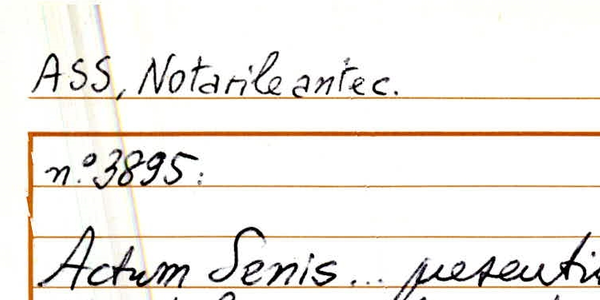 ASS, Notarile antec.
n.° 3895:
Actum Senis... presenti